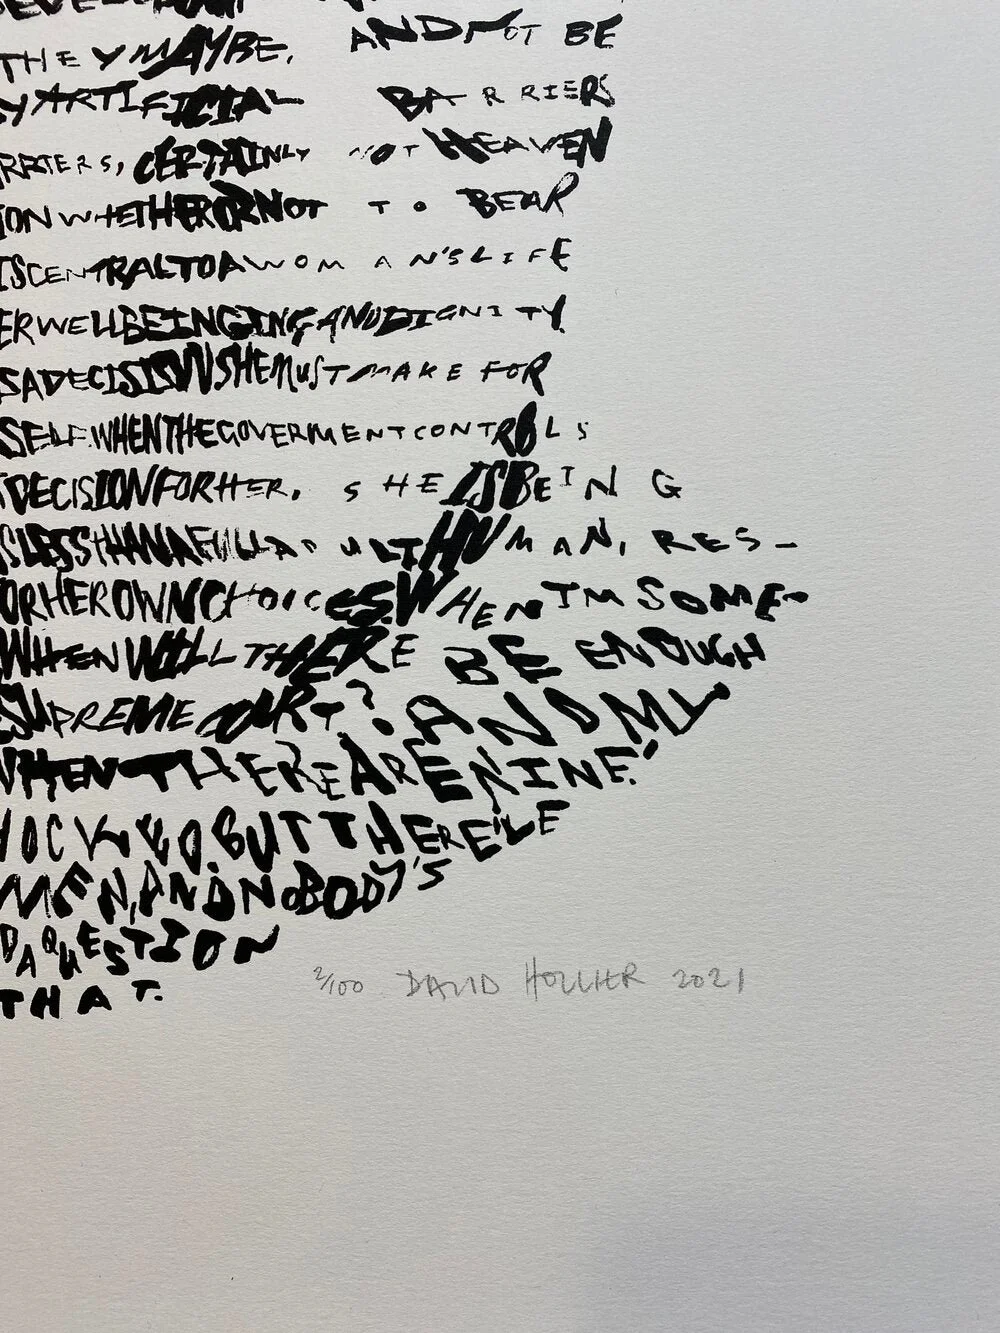 THEY MAYBE. AND NOT BE
Y ARTIFICIAL BARRIERS
RRIERS, CERTAINLY NOT HEAVEN
ION WHETHER OR NOT TO BEAR
IS CENTRAL TO A WOMAN'S LIFE
ER WELL BEING ING AND DIGNITY
S A DECISISION SHE MUST MAKE FOR
SELF. WHEN THE GOVERMENT CONTROLS
DECISION FOR HER. SHE IS BEING
S LESS THAN A FULL ADULT HUMAN, RES-
OR HER OWN CHOICES. WHEN I'M SOME-
WHEN WILL THERE BE ENOUGH
SUPREME COURT? AND MY
WHEN THERE ARE NINE.'
HOCKED. BUT THERE'LE
MEN, AND NOBODY'S
D A QUESTION
THAT.
2/100 DAVID HOLLIER 2021